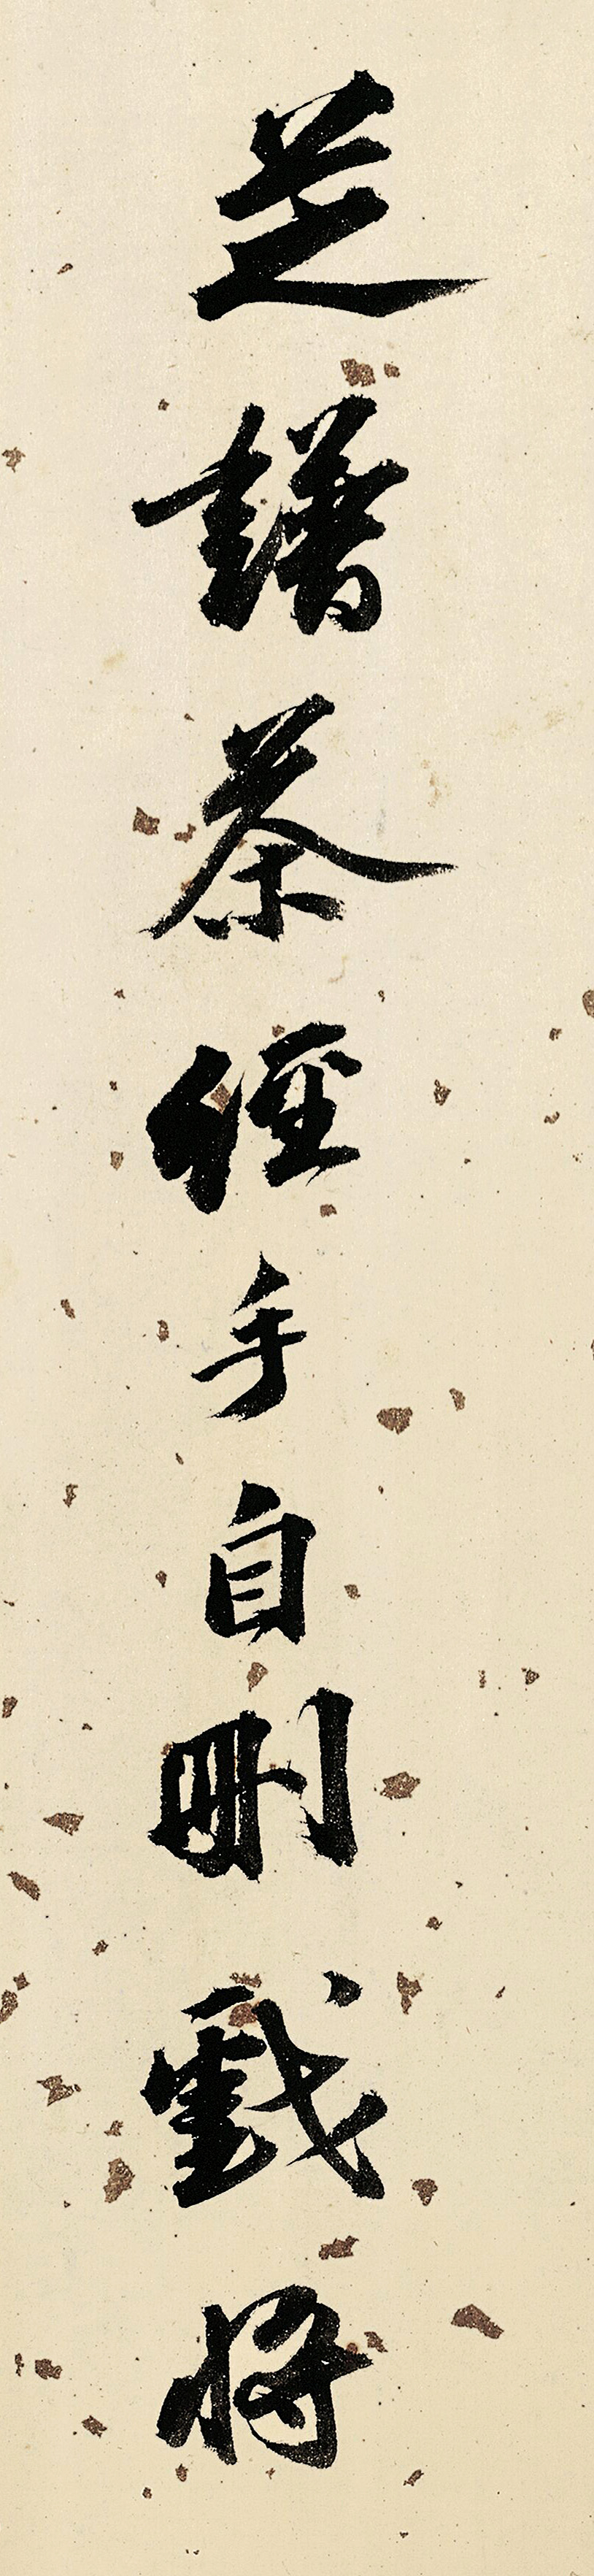 芝譜茶經手自刪戲將